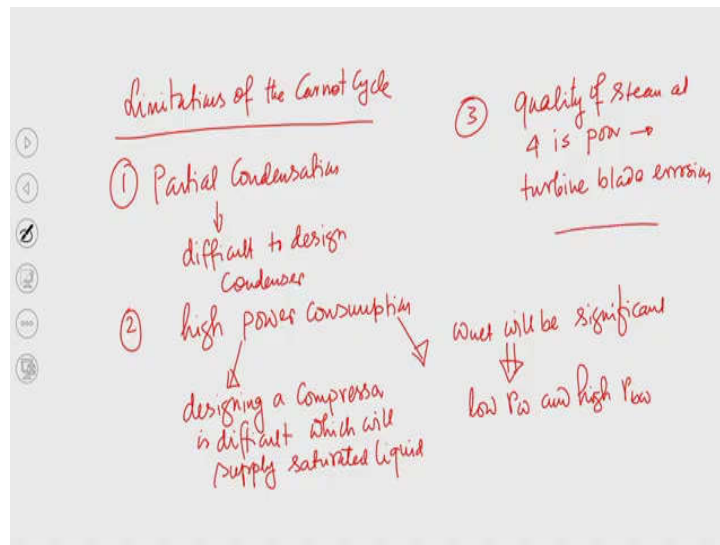 Limitations of the Carnot Cycle
① Partial Condensation
difficult to design
Condenser
② high power consumption
designing a compressor
is difficult which will
supply saturated liquid
wnet will be significant
low rw and high rbw
③ quality of steam at
4 is poor →
turbine blade errosion